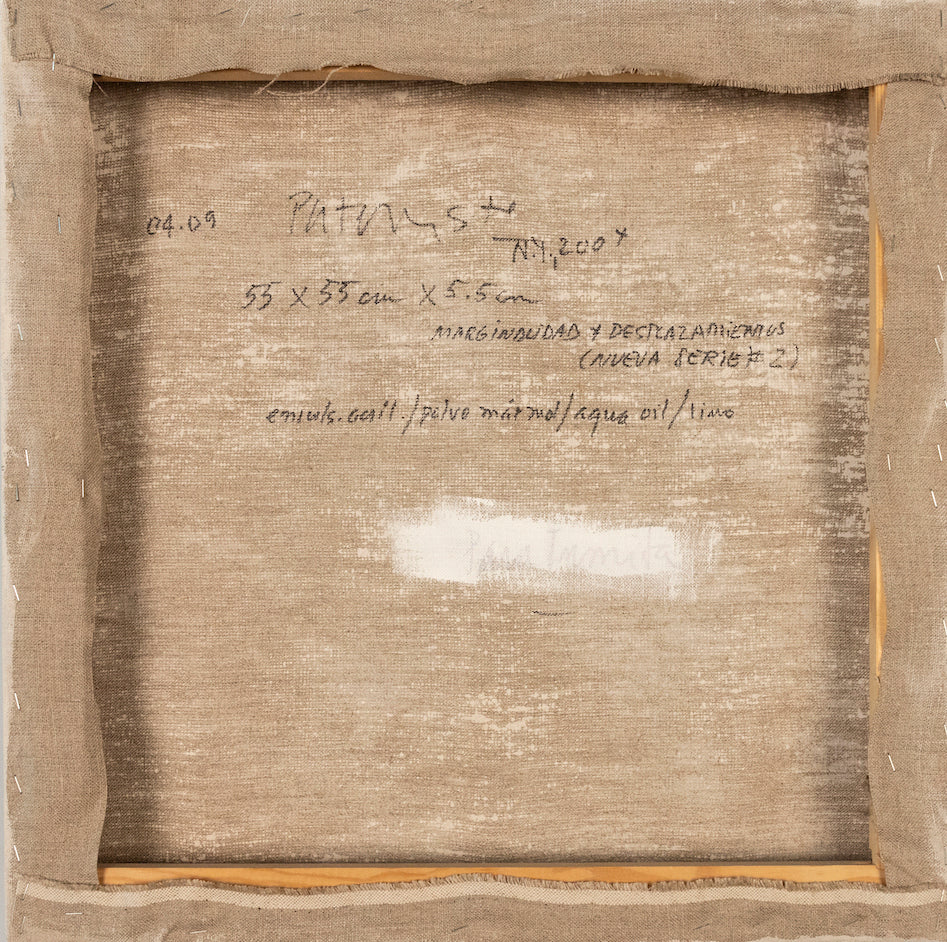 04.09
N.Y., 200
55 X 55 cm X 5.5 cm
MARGINALIDAD Y DESPLAZAMIENTOS
(NUEVA SERIE # 2)
emuls. acril. / polvo mármol / aqua oil / lino
Para